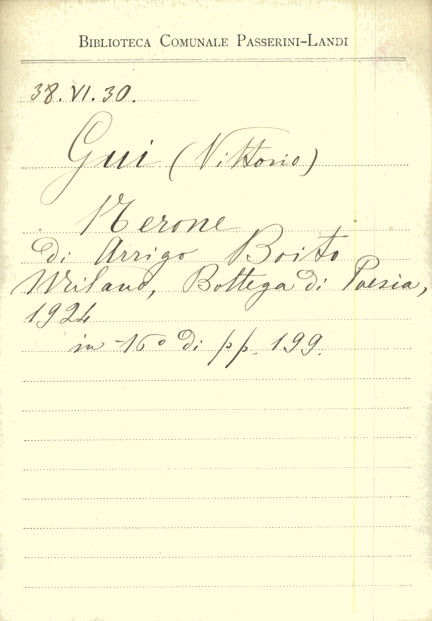 BIBLIOTECA COMUNALE PASSERINI-LANDI
38.VI.30.
Gui (Vittorio)
Nerone
di Arrigo Boito
Milano, Bottega di Poesia,
1924
in-16° di pp. 199.